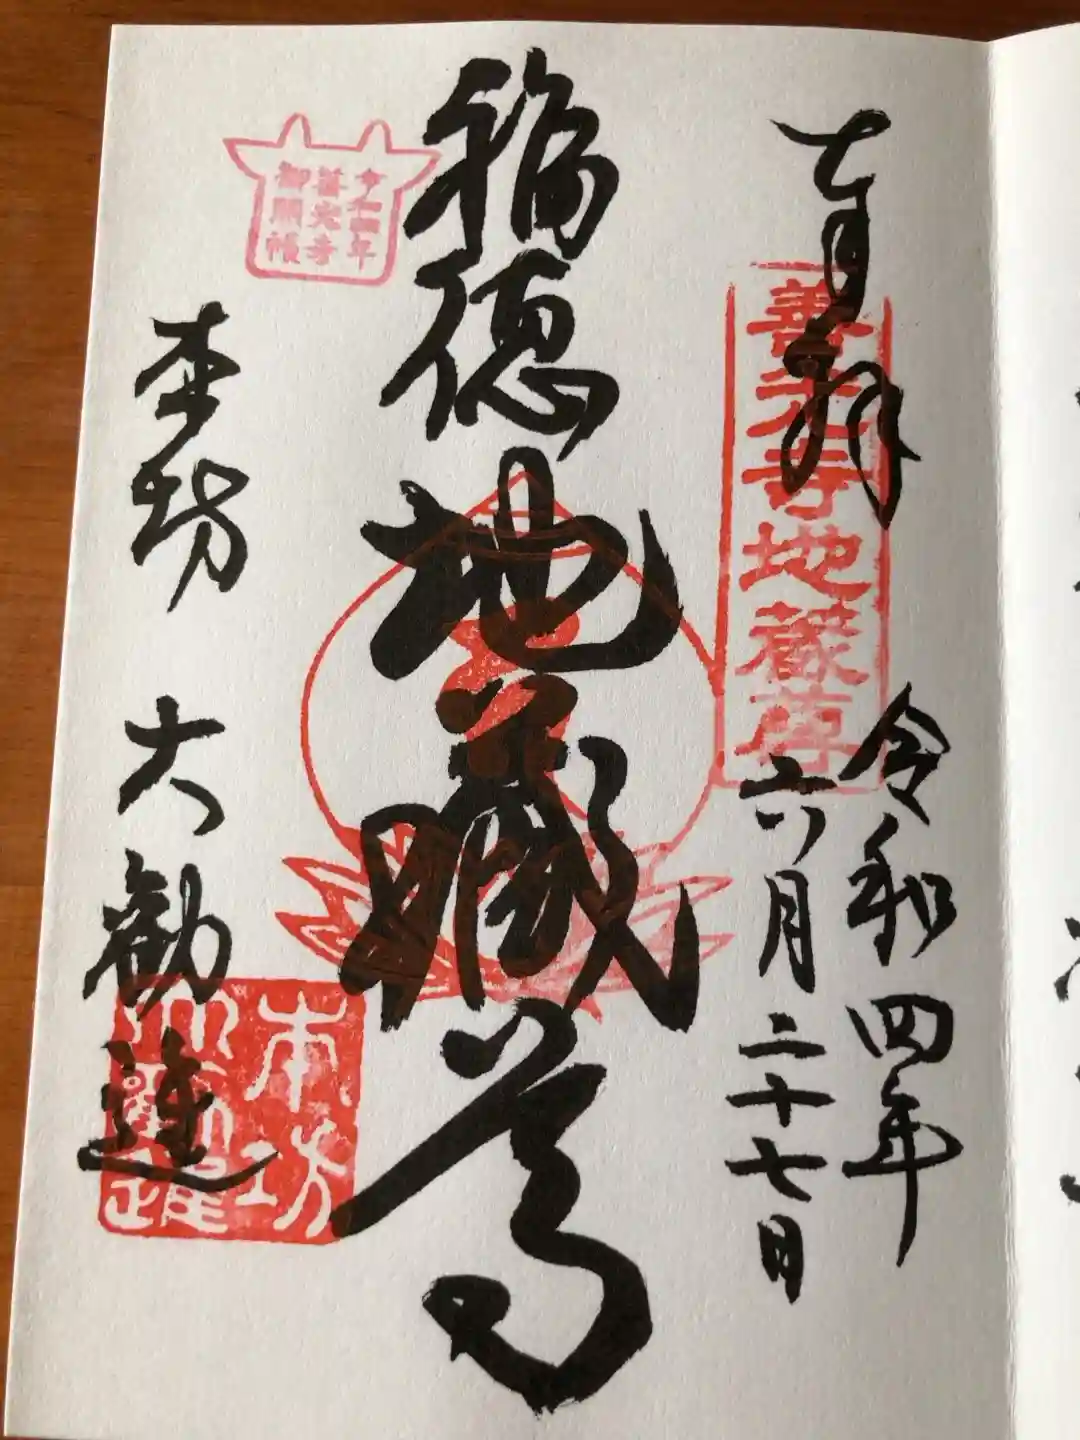 奉拝
善光寺地蔵尊
令和四年
六月二十七日
福徳地蔵尊
令和四年
善光寺
御開帳
本坊 大勧進
本坊
大勧進